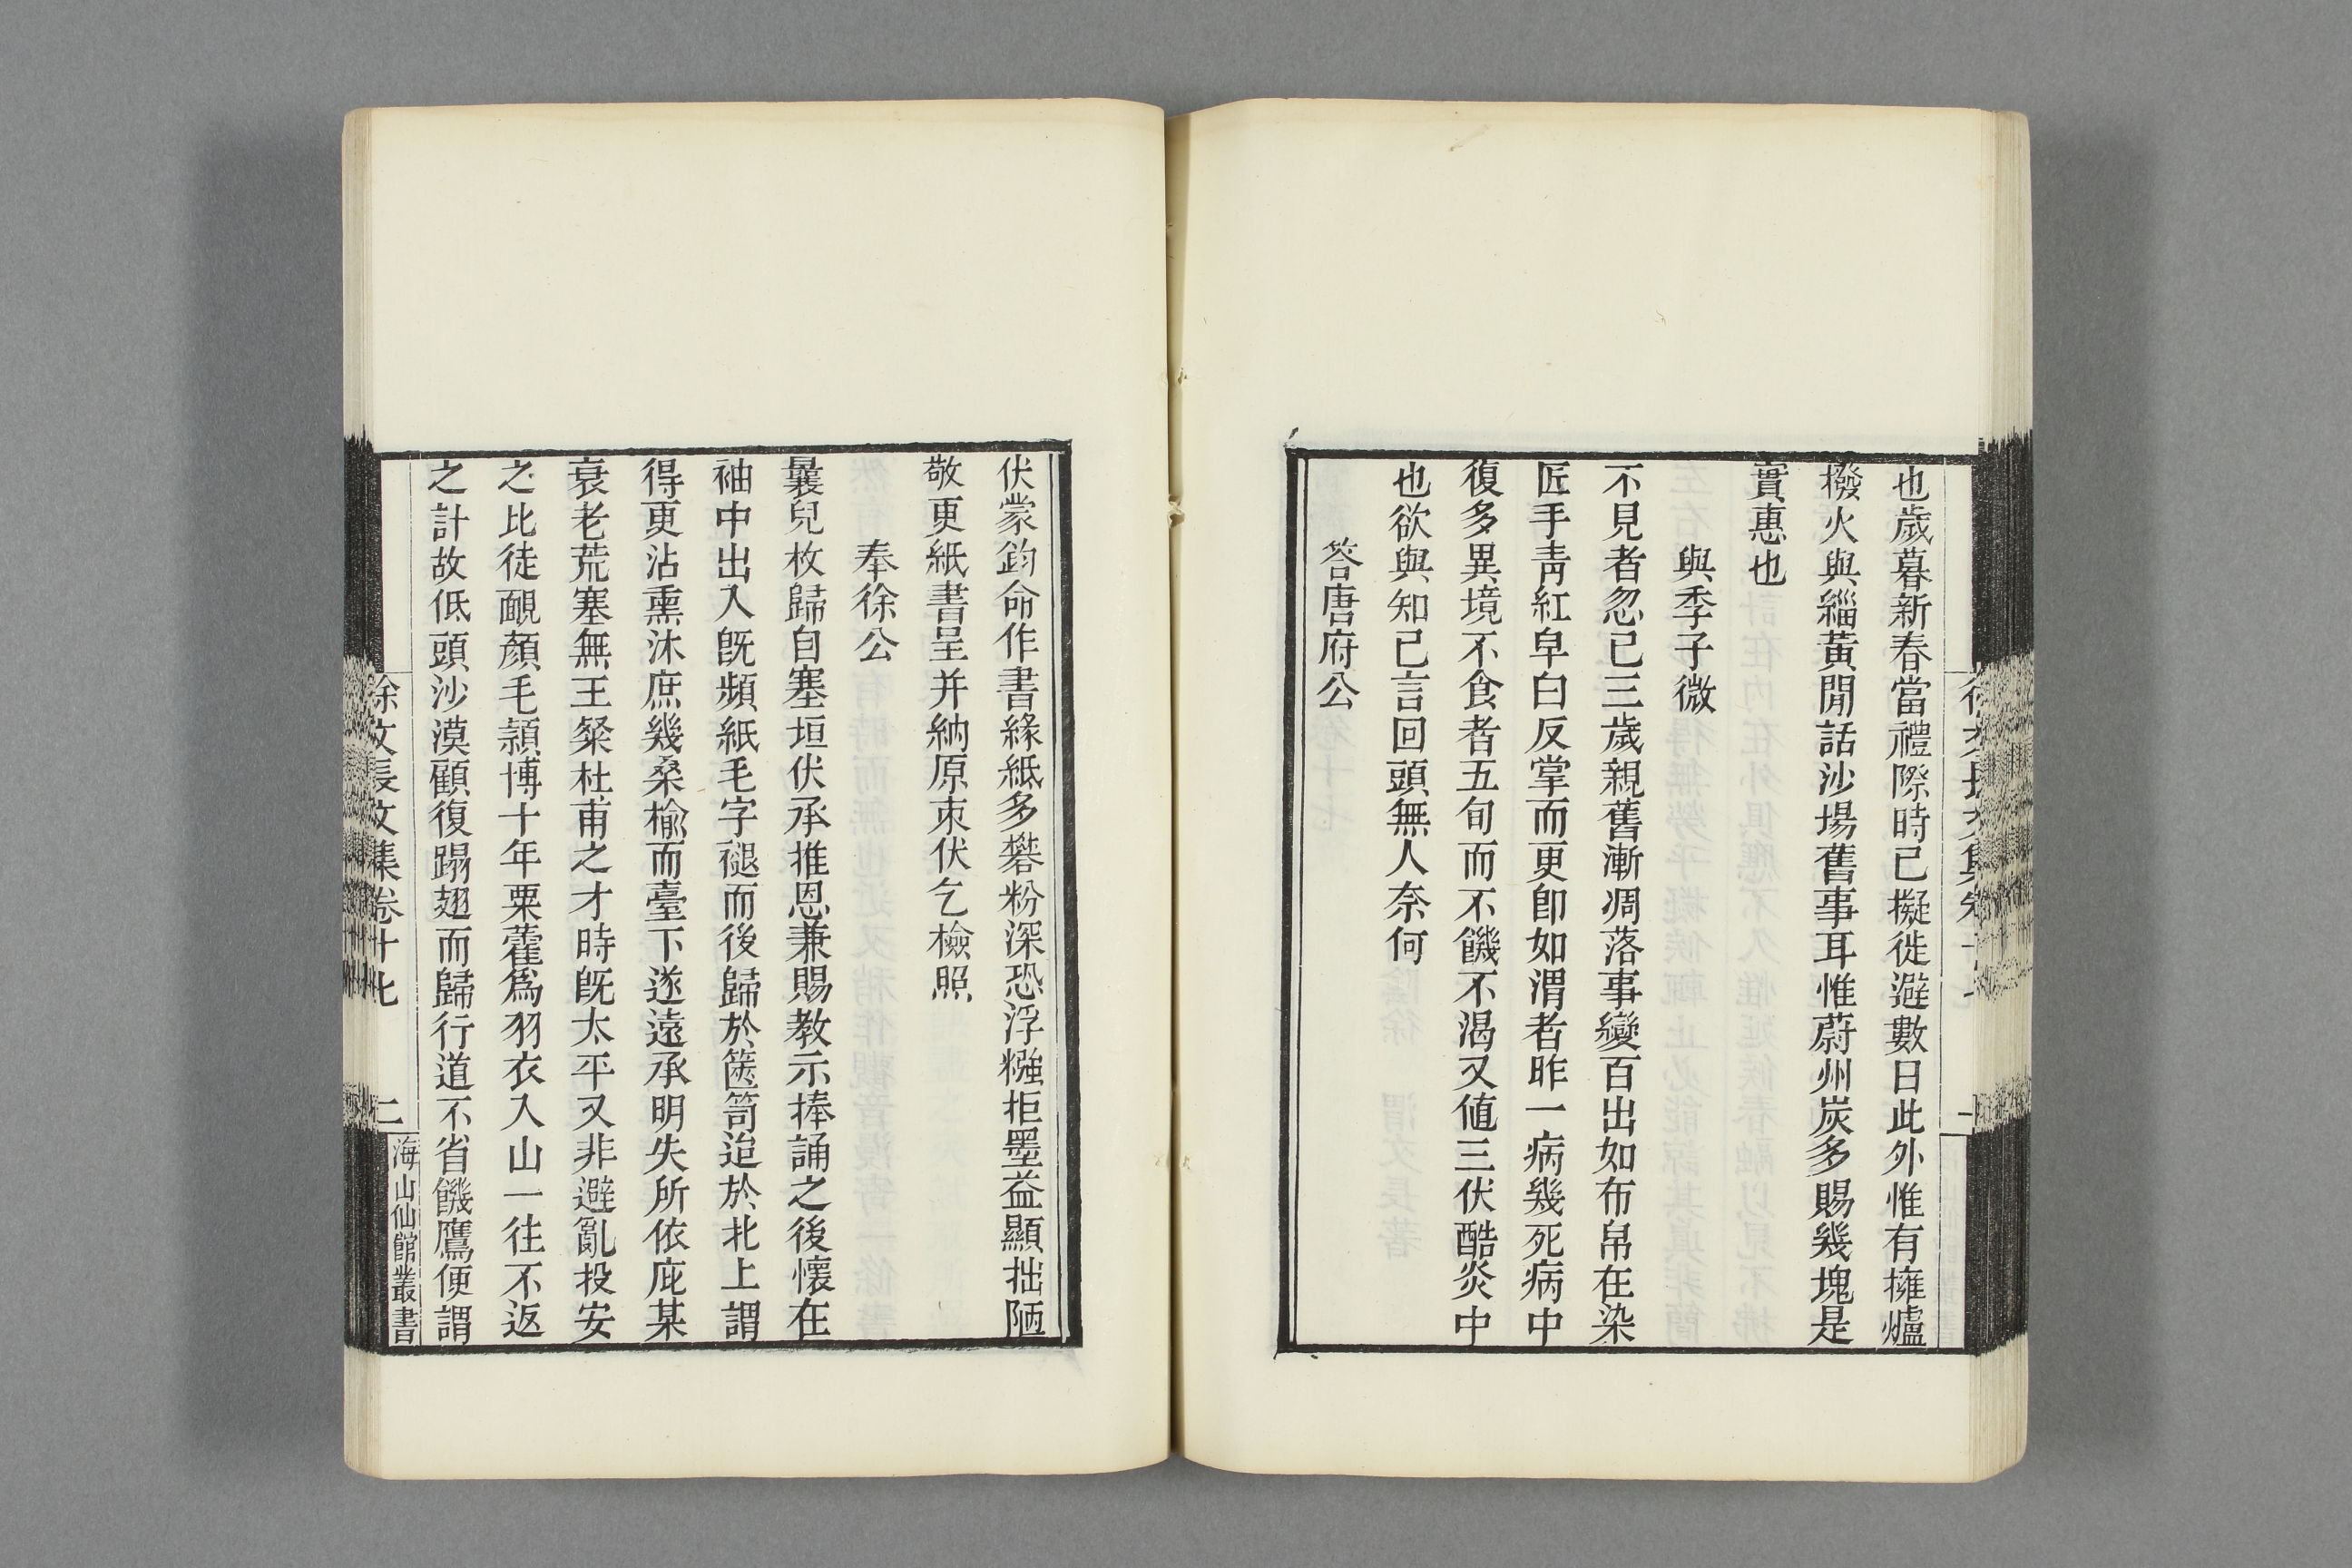 也歲暮新春當禮際時已擬徙避數日此外惟有擁爐
撥火與緇黃閒話沙場舊事耳惟蔚州炭多賜幾塊是
實惠也
與季子微
不見者忽已三歲親舊漸凋落事變百出如布帛在染
匠手靑紅皁白反掌而更卽如渭者昨一病幾死病中
復多異境不食者五旬而不饑不渴又値三伏酷炎中
也欲與知已言回頭無人奈何
答唐府公
伏蒙鈞命作書緣紙多礬粉深恐浮糨拒墨益顯拙陋
敬更紙書呈并納原朿伏乞檢照
奉徐公
曩兒枚歸自塞垣伏承推恩兼賜教示捧誦之後懷在
袖中出入旣頻紙毛字褪而後歸於篋笥迨於北上謂
得更沾熏沐庶幾桑榆而臺下遂遠承明失所依庇某
衰老荒塞無王粲杜甫之才時旣太平又非避亂投安
之比徒靦顏毛潁博十年粟藿爲羽衣入山一往不返
之計故低頭沙漠顧復蹋翅而歸行道不省饑鷹便謂
徐文長文集卷十七
二
海山仙館叢書